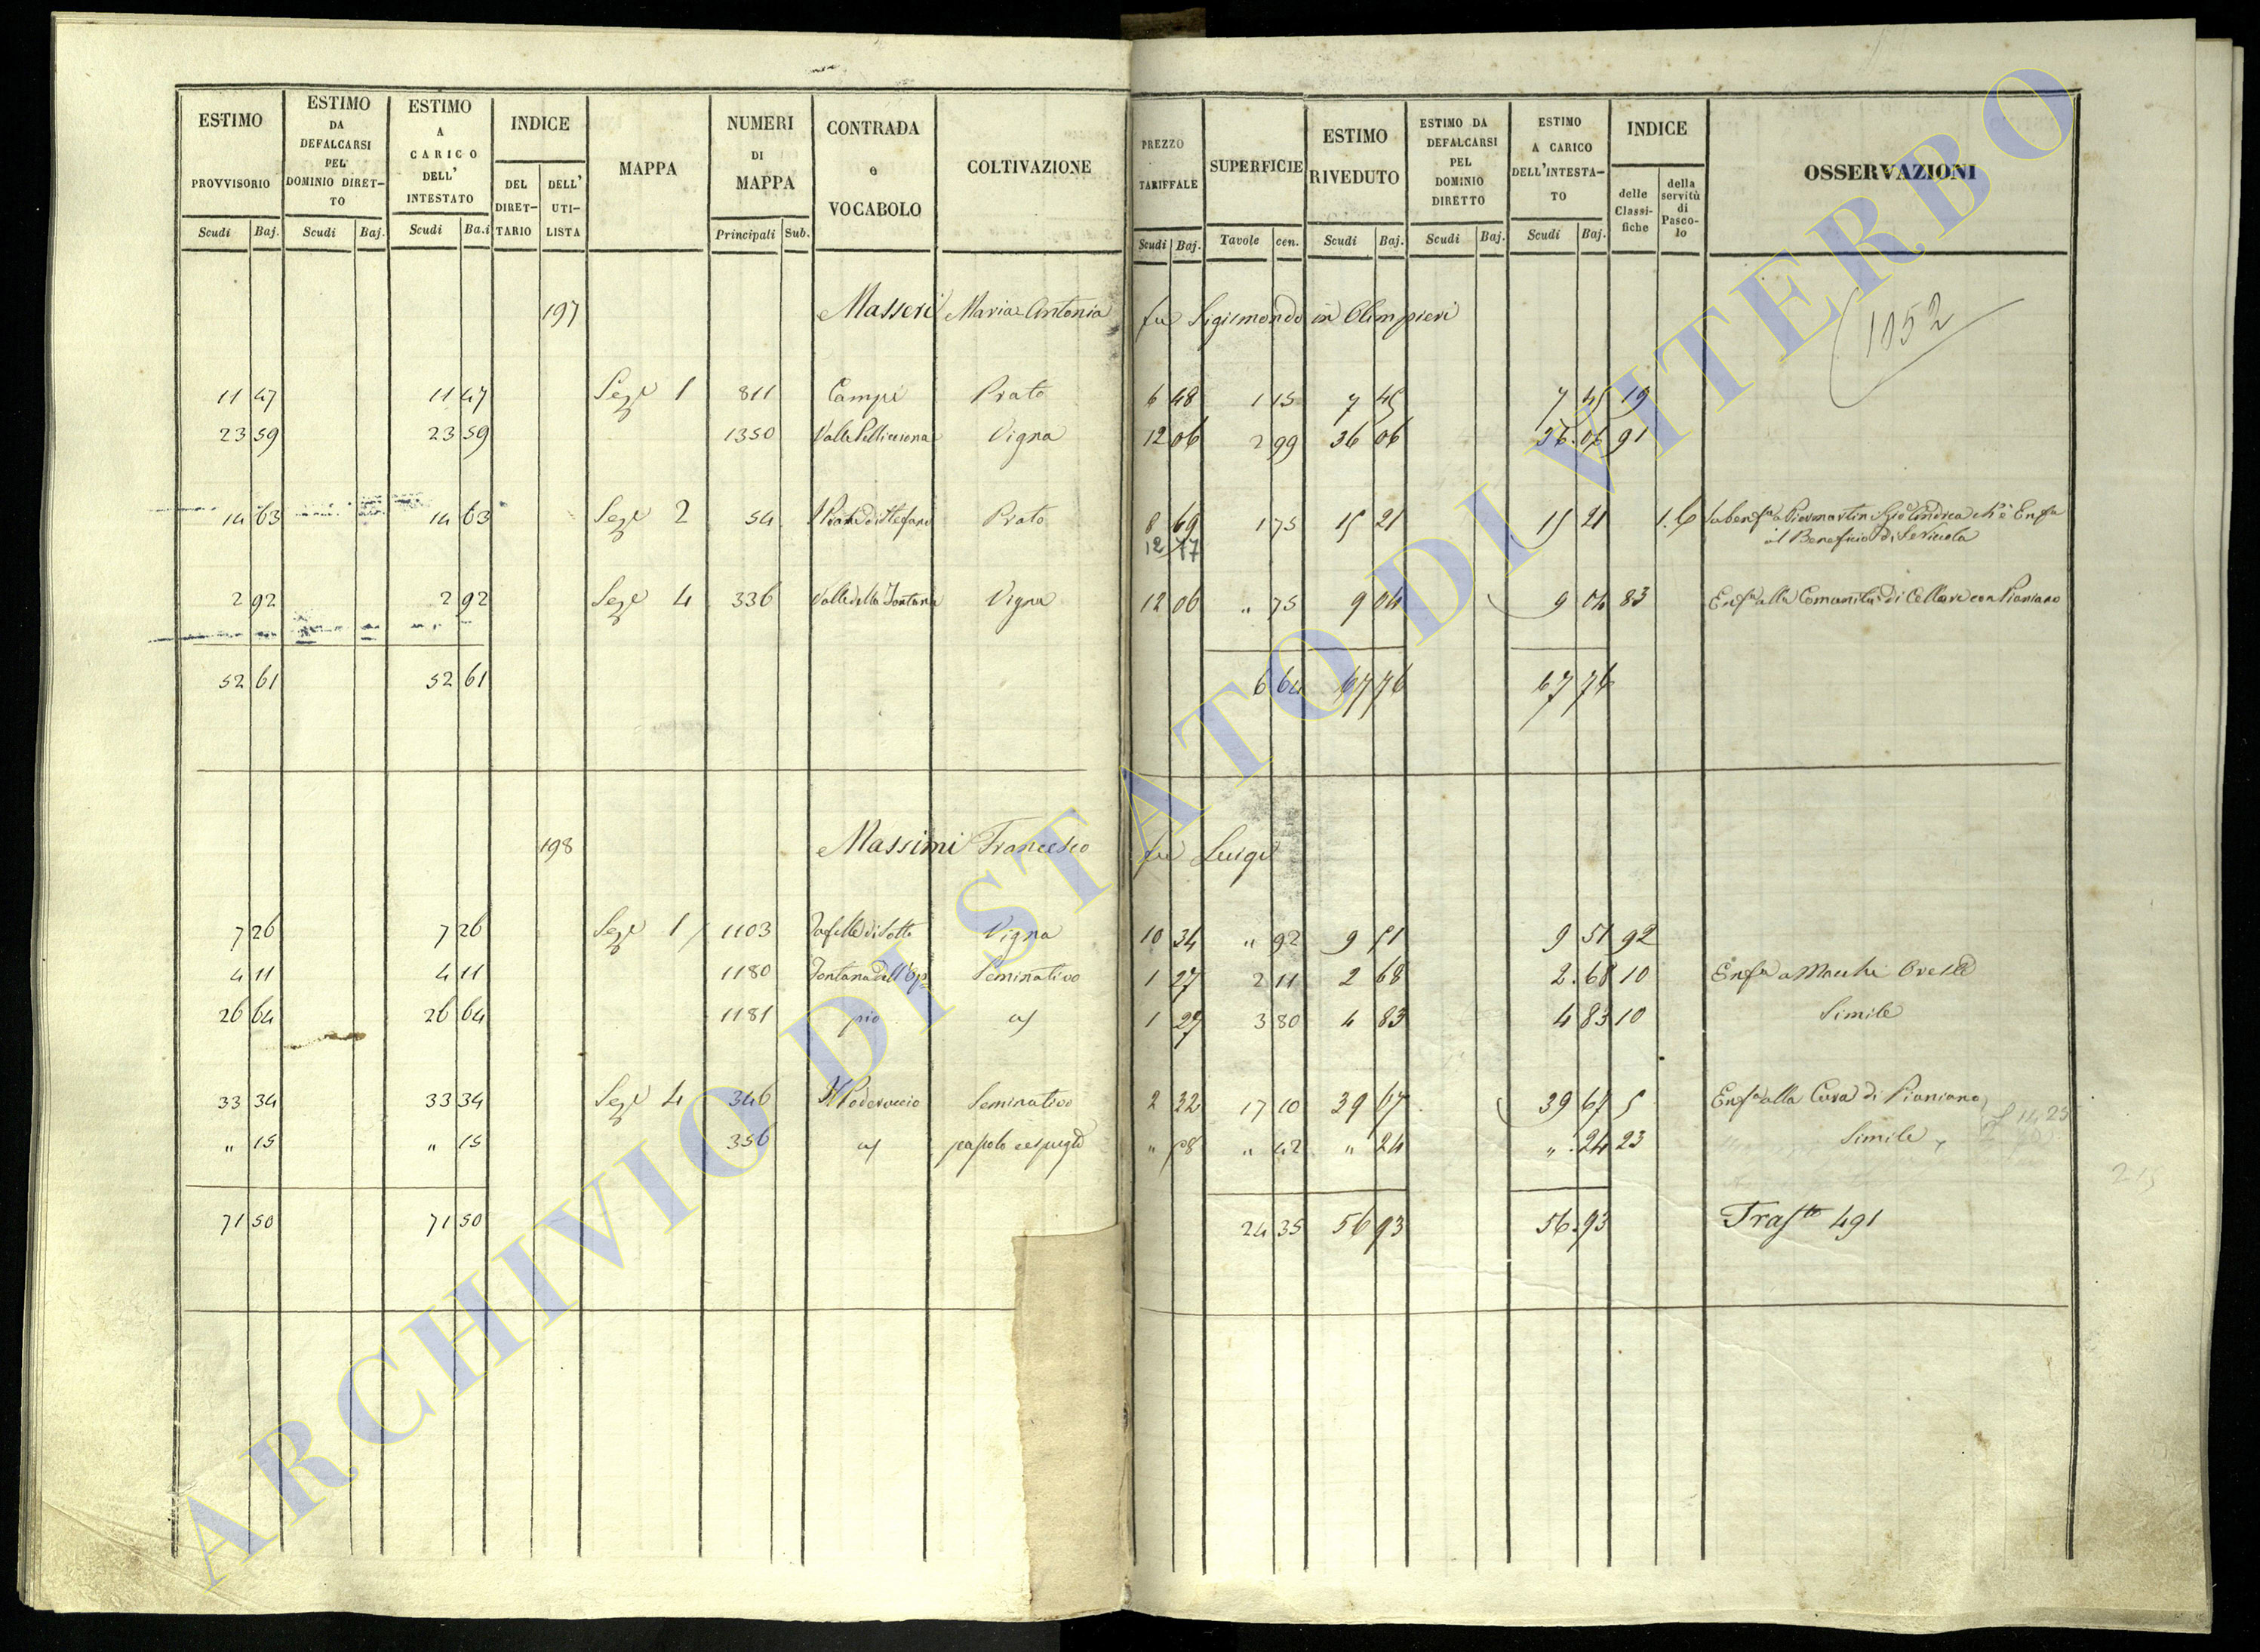 ESTIMO PROVVISORIO Scudi Baj.
ESTIMO DA DEFALCARSI PEL DOMINIO DIRET- TO Scudi Baj.
ESTIMO A CARICO DELL' INTESTATO Scudi Ba.i
INDICE DEL DIRET- TARIO DELL' UTI- LISTA
MAPPA
NUMERI DI MAPPA Principali Sub.
CONTRADA e VOCABOLO
COLTIVAZIONE
PREZZO TARIFFALE Scudi Baj.
SUPERFICIE Tavole cen.
ESTIMO RIVEDUTO Scudi Baj.
ESTIMO DA DEFALCARSI PEL DOMINIO DIRETTO Scudi Baj.
ESTIMO A CARICO DELL'INTESTA- TO Scudi Baj.
INDICE delle Classi- fiche della servitù di Pasco- lo
OSSERVAZIONI
197 Masseri Maria Antonia fu Sigismondo in Olimpieri 1052
11 47 11 47 Sez.e 1 811 Campi Prato 6 48 1 15 7 45 7 45 19
23 59 23 59 1350 Vigna 12 06 2 99 36 06 36.06 91
14 63 14 63 Sez.e 2 54 Prato 8 69 1 75 15 21 15 21 1.6
12 77 al Beneficio di S. Niccola
2 92 2 92 Sez.e 4 336 Valle della Fontana Vigna 12 06 " 75 9 04 9 04 83 Enf.a alla Comunità di Cellere con Pianiano
52 61 52 61 6 64 67 76 67 76
198 Massimi Francesco fu Luigi
7 26 7 26 Sez.e 1 1103 di Sotto Vigna 10 34 " 92 9 51 9 51 92
4 11 4 11 1180 Fontana dell'Op Seminativo 1 27 2 11 2 68 2.68 10 Enf.a a Macchi Oreste
26 64 26 64 1181 pio 1 27 3 80 4 83 4 83 10 Simile
33 34 33 34 Sez.e 4 346 Il Poderuccio Seminativo 2 32 17 10 39 67 39 67 5 Enf.a alla Cura di Pianiano
" 15 " 15 356 pascolo cespugl.o " 58 " 42 " 24 " .24 23 Simile
71 50 71 50 24 35 56 93 56.93 Tras.to 491
ARCHIVIO DI STATO DI VITERBO